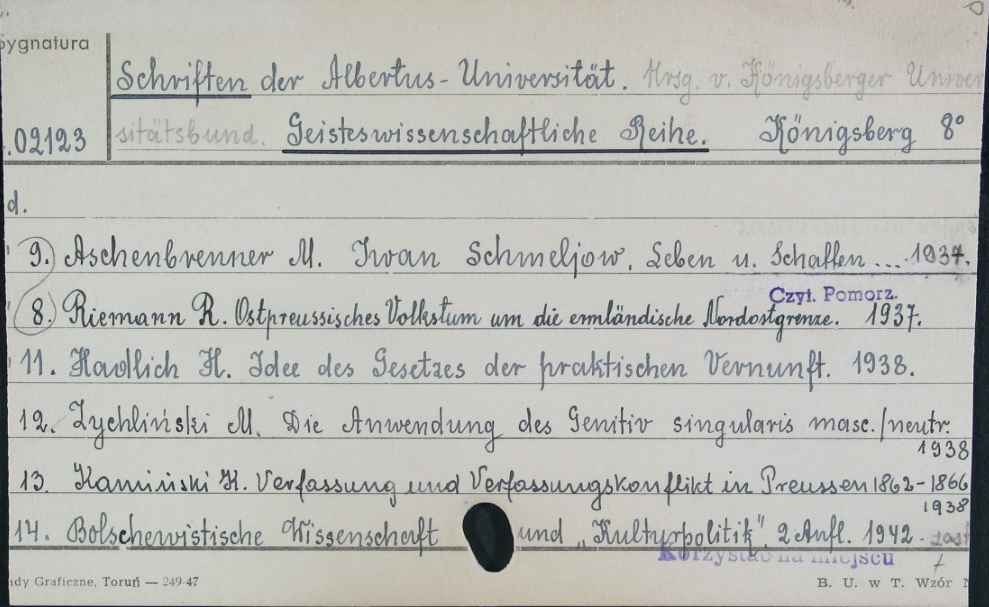 Sygnatura
Schriften der Albertus-Universität. Hrsg. v. Königsberger Univer
.02123 sitätsbund. Geisteswissenschaftliche Reihe. Königsberg 8°
d.
9. Aschenbrenner M. Iwan Schmeljow, Leben u. Schaffen ... 1937.
Czyt. Pomorz.
8. Riemann R. Ostpreussisches Volkstum um die ermländische Nordostgrenze. 1937.
11. Hadlich H. Idee des Gesetzes der praktischen Vernunft. 1938.
12. Zychliński M. Die Anwendung des Genitiv singularis masc./neutr.
1938
13. Kamiński K. Verfassung und Verfassungskonflikt in Preussen 1862-1866
1938
14. Bolschewistische Wissenschaft und "Kulturpolitik". 2 Aufl. 1942.
Korzystać na miejscu
ady Graficzne, Toruń — 249-47 B. U. w T. Wzór